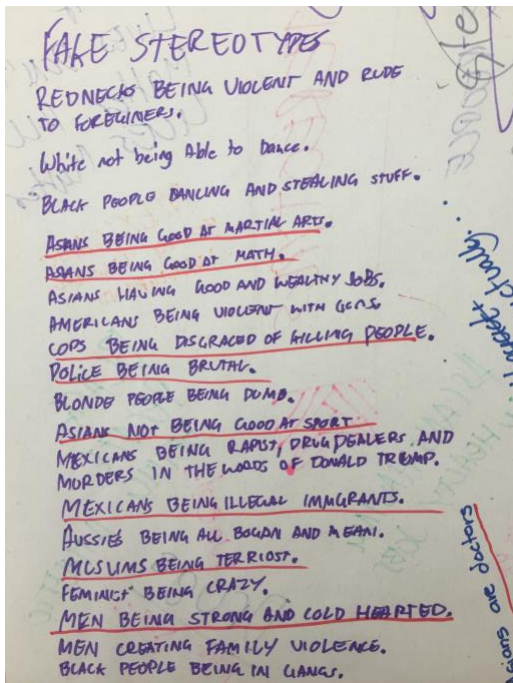 FAKE STEREOTYPES
REDNECKS BEING VIOLENT AND RUDE
TO FOREGINERS.
White not being Able to Dance.
BLACK PEOPLE DANCING AND STEALING STUFF.
ASIANS BEING GOOD AT MARTIAL ARTS.
ASIANS BEING GOOD AT MATH.
ASIANS HAVING GOOD AND WEALTHY JOBS.
AMERICANS BEING VIOLENT WITH GUNS
COPS BEING DISGRACED OF KILLING PEOPLE.
POLICE BEING BRUTAL.
BLONDE PEOPLE BEING DUMB.
ASIANS NOT BEING GOOD AT SPORT
MEXICANS BEING RAPIST, DRUG DEALERS AND
MURDERS IN THE WORDS OF DONALD TRUMP.
MEXICANS BEING ILLEGAL IMMGRANTS.
AUSSIES BEING ALL BOGAN AND MEAN.
MUSLIMS BEING TERRIOST.
FEMINIST BEING CRAZY.
MEN BEING STRONG AND COLD HEARTED.
MEN CREATING FAMILY VIOLENCE.
BLACK PEOPLE BEING IN GANGS.
actually..
are doctors